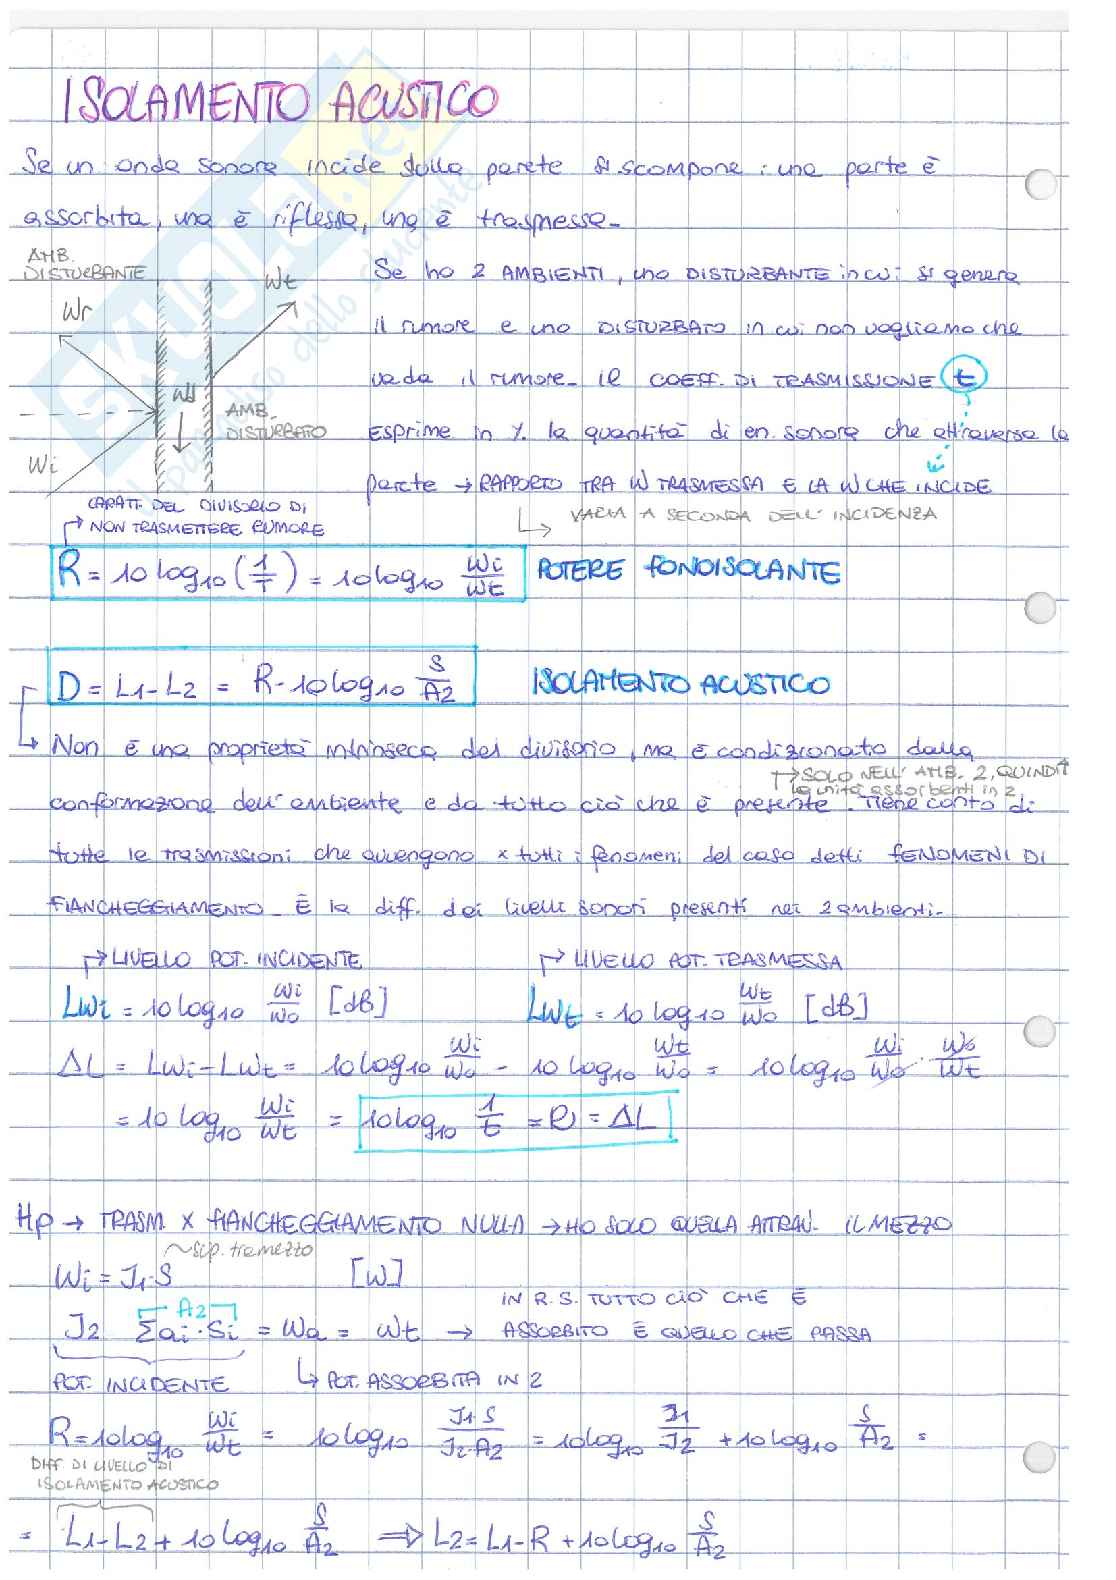 ISOLAMENTO ACUSTICO
Se un onda sonora incide sulla parete si scompone : una parte è
assorbita, una è riflessa, una è trasmessa.
AMB.
DISTURBANTE
Wr
Wt
Wi
AMB.
DISTURBATO
Se ho 2 AMBIENTI, uno DISTURBANTE in cui si genera
il rumore e uno DISTURBATO in cui non vogliamo che
vada il rumore. il COEFF. DI TRASMISSIONE t
Esprime in % la quantità di en. sonora che attraversa la
parete → RAPPORTO TRA W TRASMESSA E LA W CHE INCIDE
VARIA A SECONDA DELL'INCIDENZA
CARATT. DEL DIVISORIO DI
NON TRASMETTERE RUMORE
R = 10 log10 (1/T) = 10 log10 Wi/Wt POTERE FONOISOLANTE
D = L1 - L2 = R - 10 log10 S/A2 ISOLAMENTO ACUSTICO
Non è una proprietà intrinseca del divisorio, ma è condizionato dalla
→ SOLO NELL'AMB. 2, QUINDI
le unità assorbenti in 2
conformazione dell'ambiente e da tutto ciò che è presente. Tiene conto di
tutte le trasmissioni che avvengono x tutti i fenomeni del caso detti FENOMENI DI
FIANCHEGGIAMENTO. È la diff. dei livelli sonori presenti nei 2 ambienti.
→ LIVELLO POT. INCIDENTE → LIVELLO POT. TRASMESSA
Lwi = 10 log10 Wi/Wo [dB] Lwt = 10 log10 Wt/Wo [dB]
ΔL = Lwi - Lwt = 10 log10 Wi/Wo - 10 log10 Wt/Wo = 10 log10 Wi/Wo · Wo/Wt
= 10 log10 Wi/Wt = 10 log10 1/t = R = ΔL
Hp → TRASM. x FIANCHEGGIAMENTO NULLA → HO SOLO QUELLA ATTRAV. IL MEZZO
~ sup. tramezzo
Wi = J1·S [W]
A2
IN R.S. TUTTO CIÒ CHE È
J2 Σai·Si = Wa = Wt → ASSORBITO È QUELLO CHE PASSA
POT. INCIDENTE ↳ POT. ASSORBITA IN 2
R = 10 log10 Wi/Wt = 10 log10 J1·S/J2·A2 = 10 log10 J1/J2 + 10 log10 S/A2 =
DIFF. DI LIVELLO DI
ISOLAMENTO ACUSTICO
= L1 - L2 + 10 log10 S/A2 ⇒ L2 = L1 - R + 10 log10 S/A2